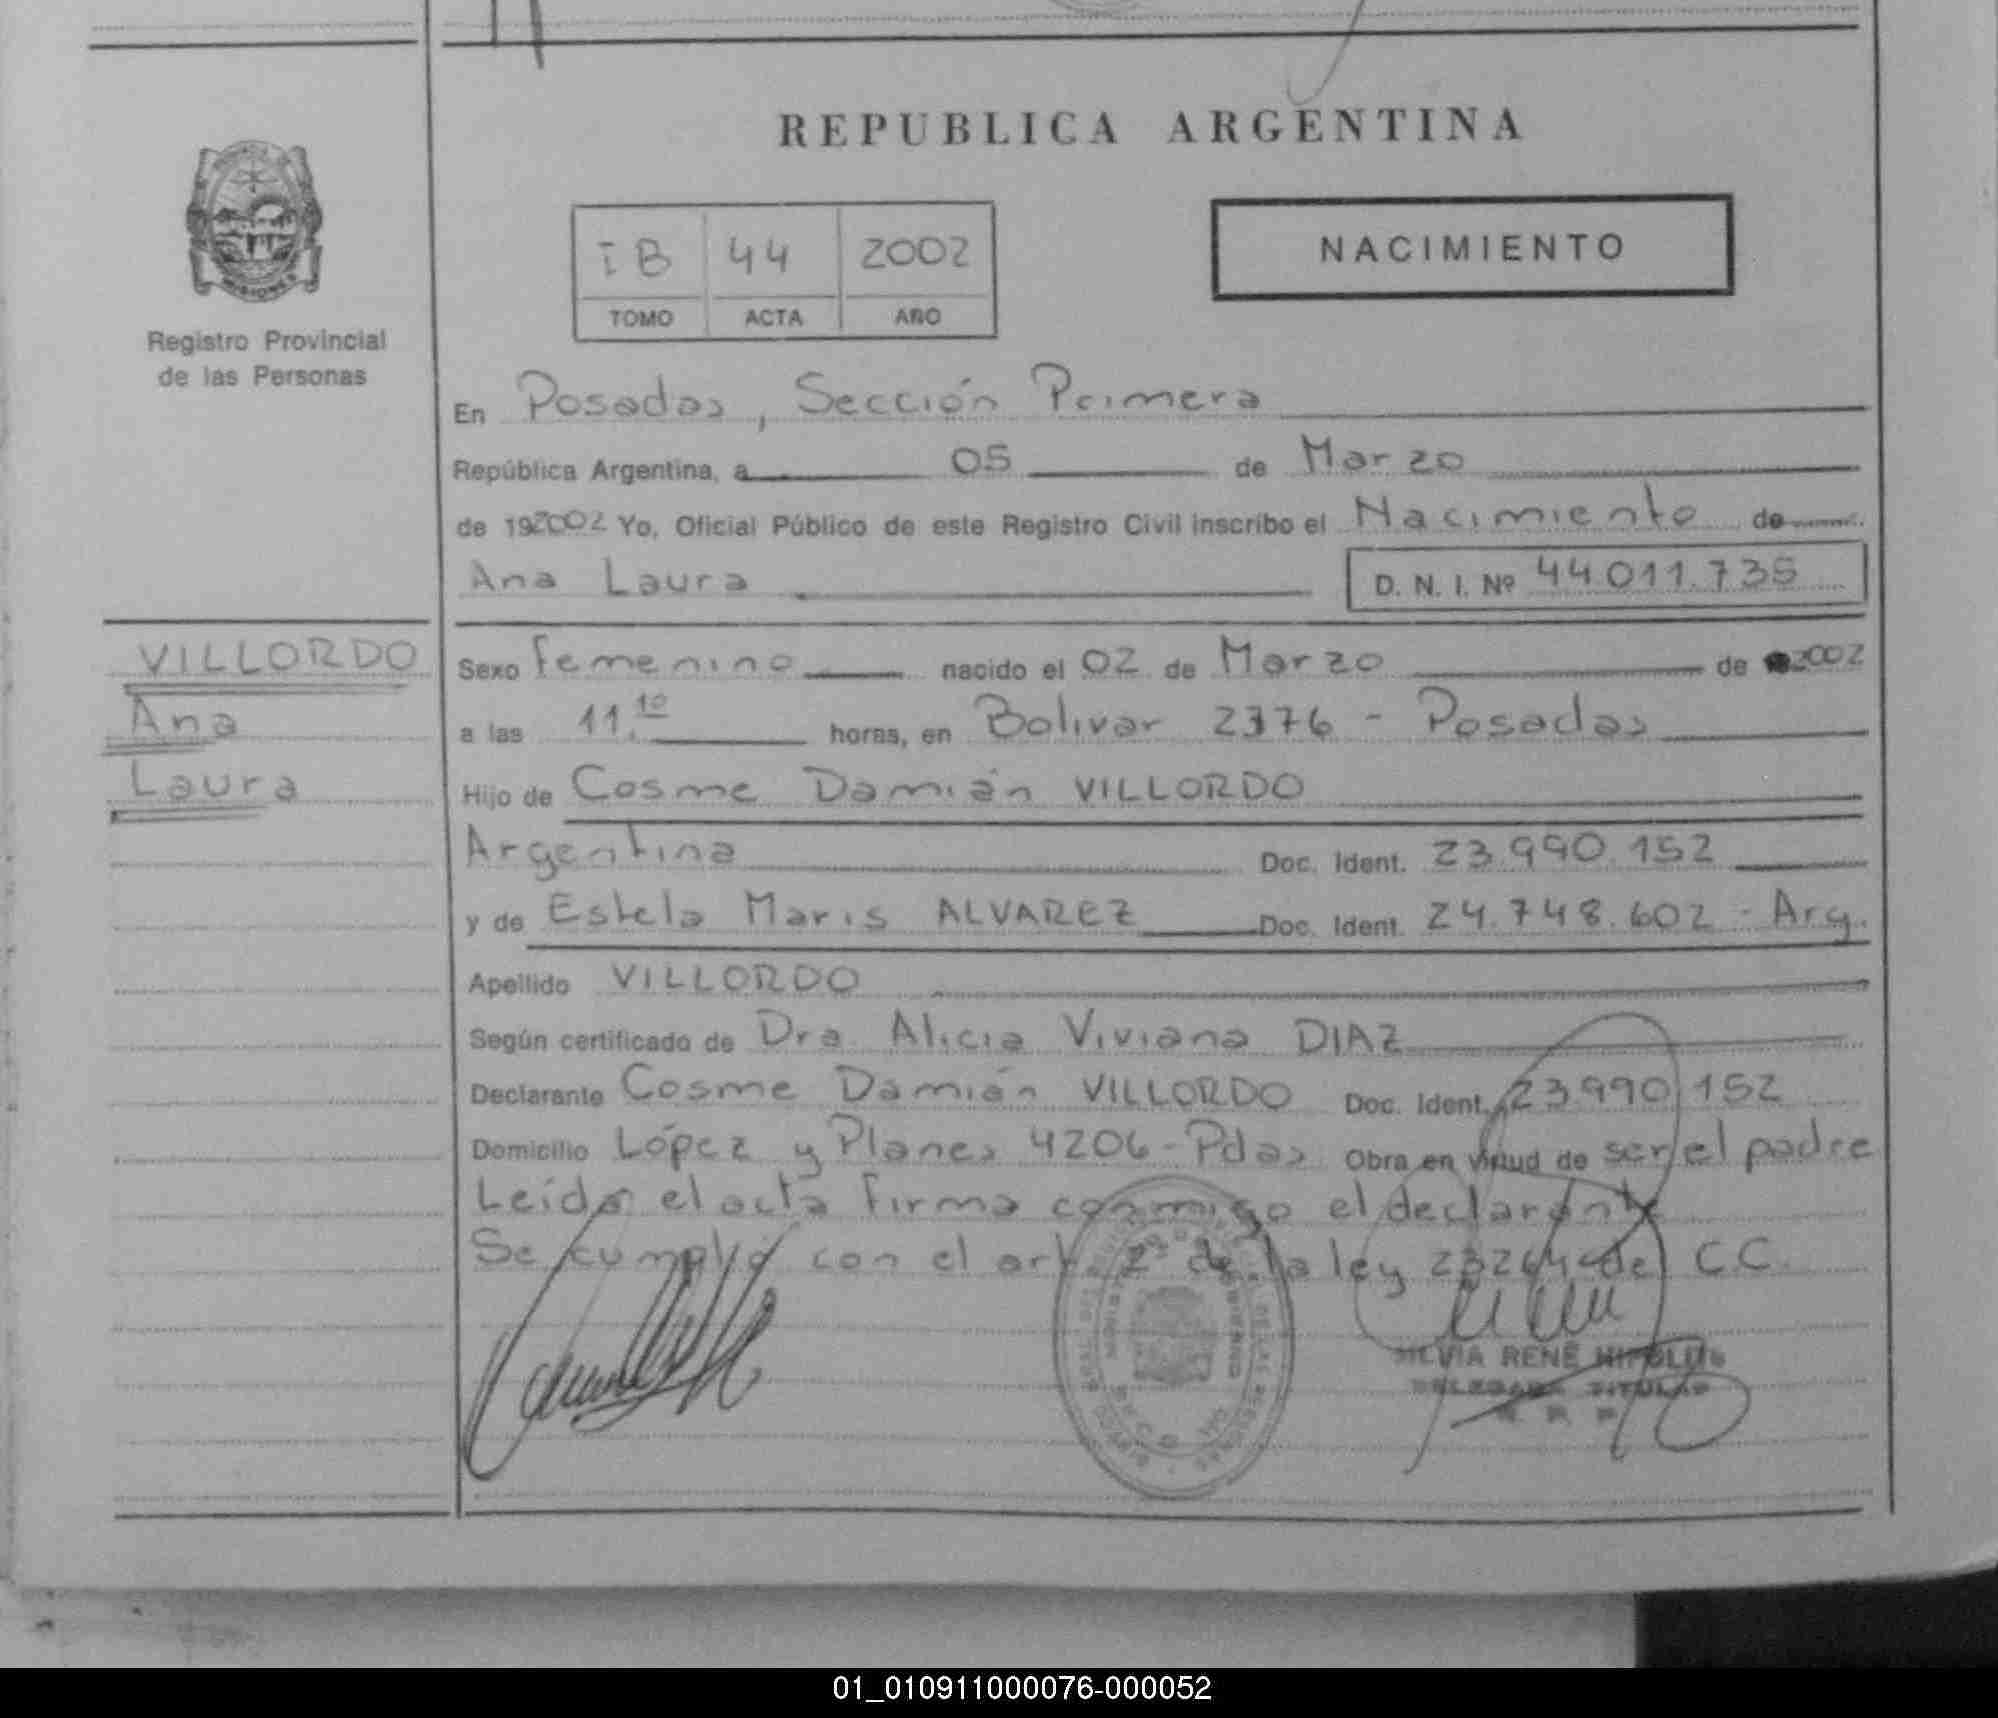 REPUBLICA ARGENTINA
MISIONES
Registro Provincial
de las Personas
IB 44 2002
TOMO ACTA AÑO
NACIMIENTO
En Posadas, Sección Primera
República Argentina, a 05 de Marzo
de 192002 Yo, Oficial Público de este Registro Civil inscribo el Nacimiento de
Ana Laura D. N. I. Nº 44.011.735
VILLORDO
Ana
Laura
Sexo femenino nacido el 02 de Marzo de 2002
a las 11.10 horas, en Bolivar 2376 - Posadas
Hijo de Cosme Damián VILLORDO
Argentina Doc. Ident. 23.990.152
y de Estela Maris ALVAREZ Doc. Ident. 24.748.602 - Arg.
Apellido VILLORDO
Según certificado de Dra. Alicia Viviana DIAZ
Declarante Cosme Damián VILLORDO Doc. Ident. 23.990.152
Domicilio López y Planes 4206 - Pdas Obra en virtud de ser el padre
Leída el acta firma conmigo el declarante
Se cumplió con el art. 2º de la ley 23264 del C.C.
SILVIA RENÉ HIPOLITO
DELEGADA TITULAR
01_010911000076-000052